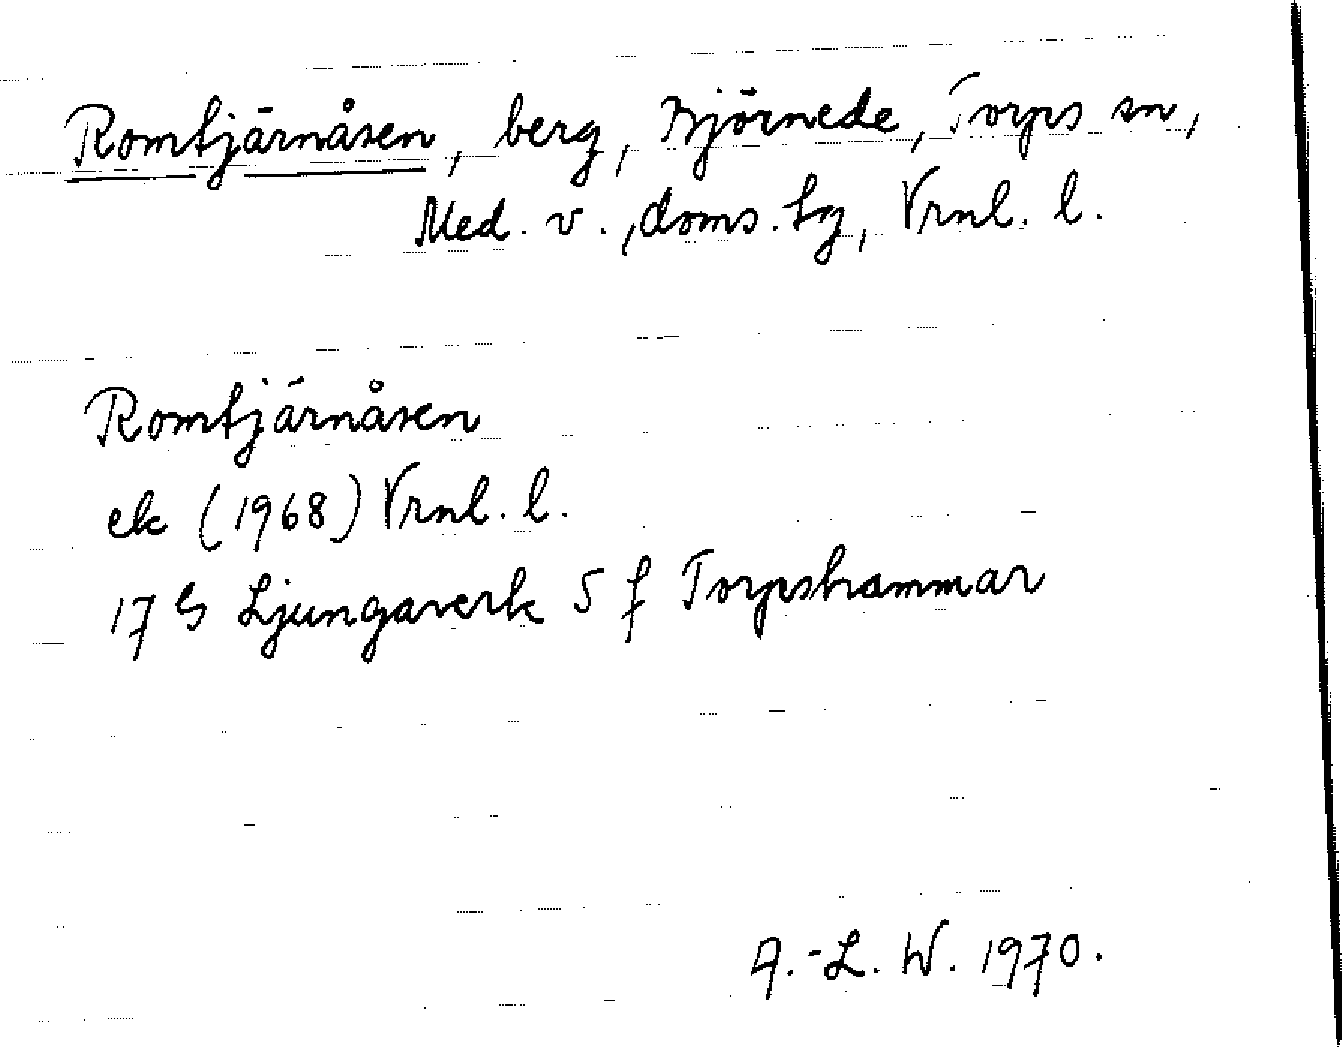 Romtjärnåsen, berg, Björnede, Torps sn,
Med. v., doms. tg, Vrnl. l.
Romtjärnåsen
ek (1968) Vrnl. l.
17 G Ljungaverk 5 f Torpshammar
A.-L. W. 1970.